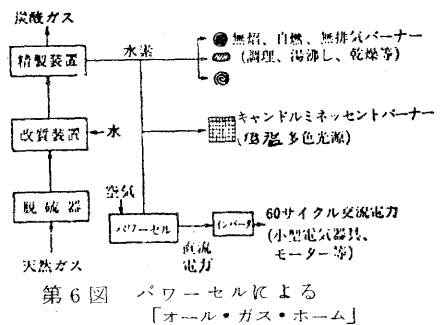 炭酸ガス
精製装置
水素
無焰、自燃、無排気バーナー
(調理、湯沸し、乾燥等)
改質装置
水
キャンドルミネッセントバーナー
多色光源)
脱硫器
天然ガス
空気
パワーセル
直流
電力
インバータ
60サイクル交流電力
(小型電気器具、
モーター等)
第6図 パワーセルによる
「オール・ガス・ホーム」